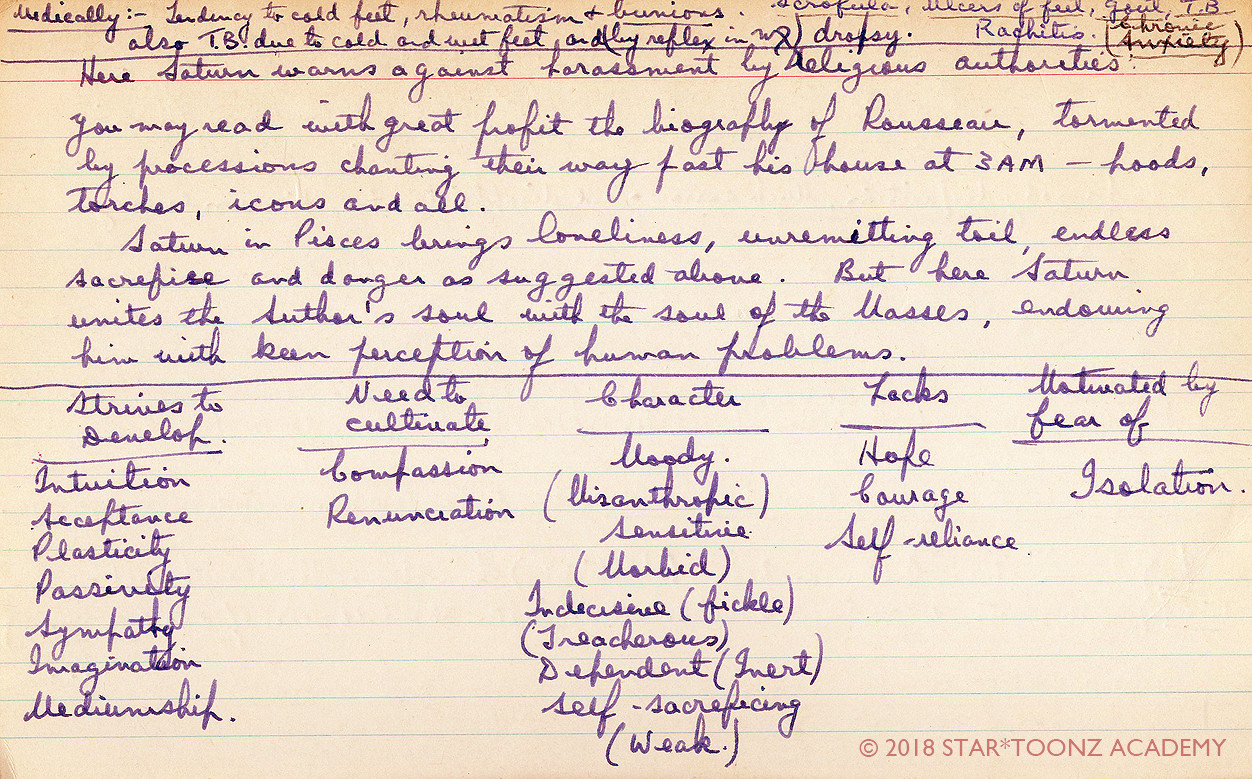 Medically:- Tendency to cold feet, rheumatism & bunions Scrofula, Ulcers of feet, Gout, T.B.
also T.B. due to cold and wet feet and (by reflex in ♍) dropsy. Rachitis. (Chronic Anxiety)
Here Saturn warns against harassment by religious authorities.
You may read with great profit the biography of Rousseau, tormented
by processions chanting their way past his house at 3 AM – hoods,
torches, icons and all.
Saturn in Pisces brings loneliness, unremitting toil, endless
sacrifice and danger as suggested above. But here Saturn
unites the Author's soul with the soul of the Masses, endowing
him with keen perception of human problems.
Strives to Develop.
Intuition
Acceptance
Plasticity
Passivity
Sympathy
Imagination
Mediumship.
Need to cultivate
Compassion
Renunciation
Character
Moody.
(Misanthropic)
Sensitive
(Morbid)
Indecisive (fickle)
(Treacherous)
Dependent (Inert)
Self-sacrificing
(Weak.)
Lacks
Hope
Courage
Self-reliance
Motivated by
fear of
Isolation.
© 2018 STAR*TOONZ ACADEMY